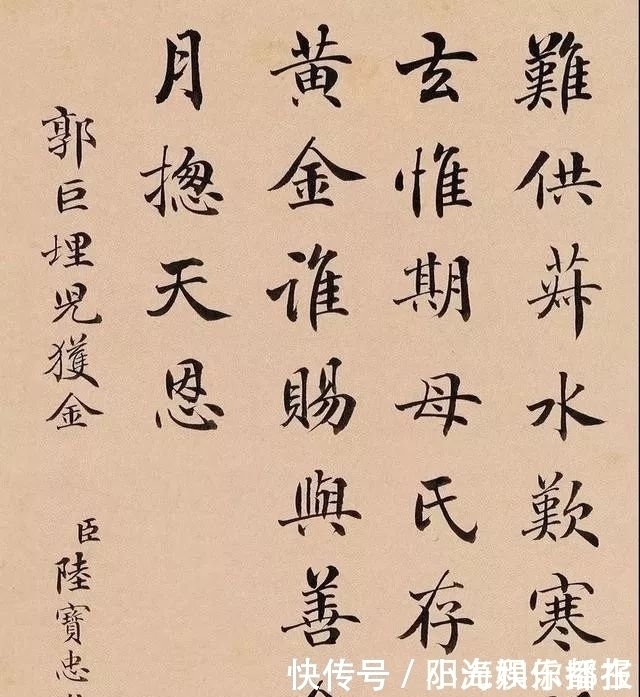 難供菽水歎寒
玄惟期母氏存
黄金誰賜與善
月揔天恩
郭巨埋兒獲金
臣陸寶忠
快传号 /